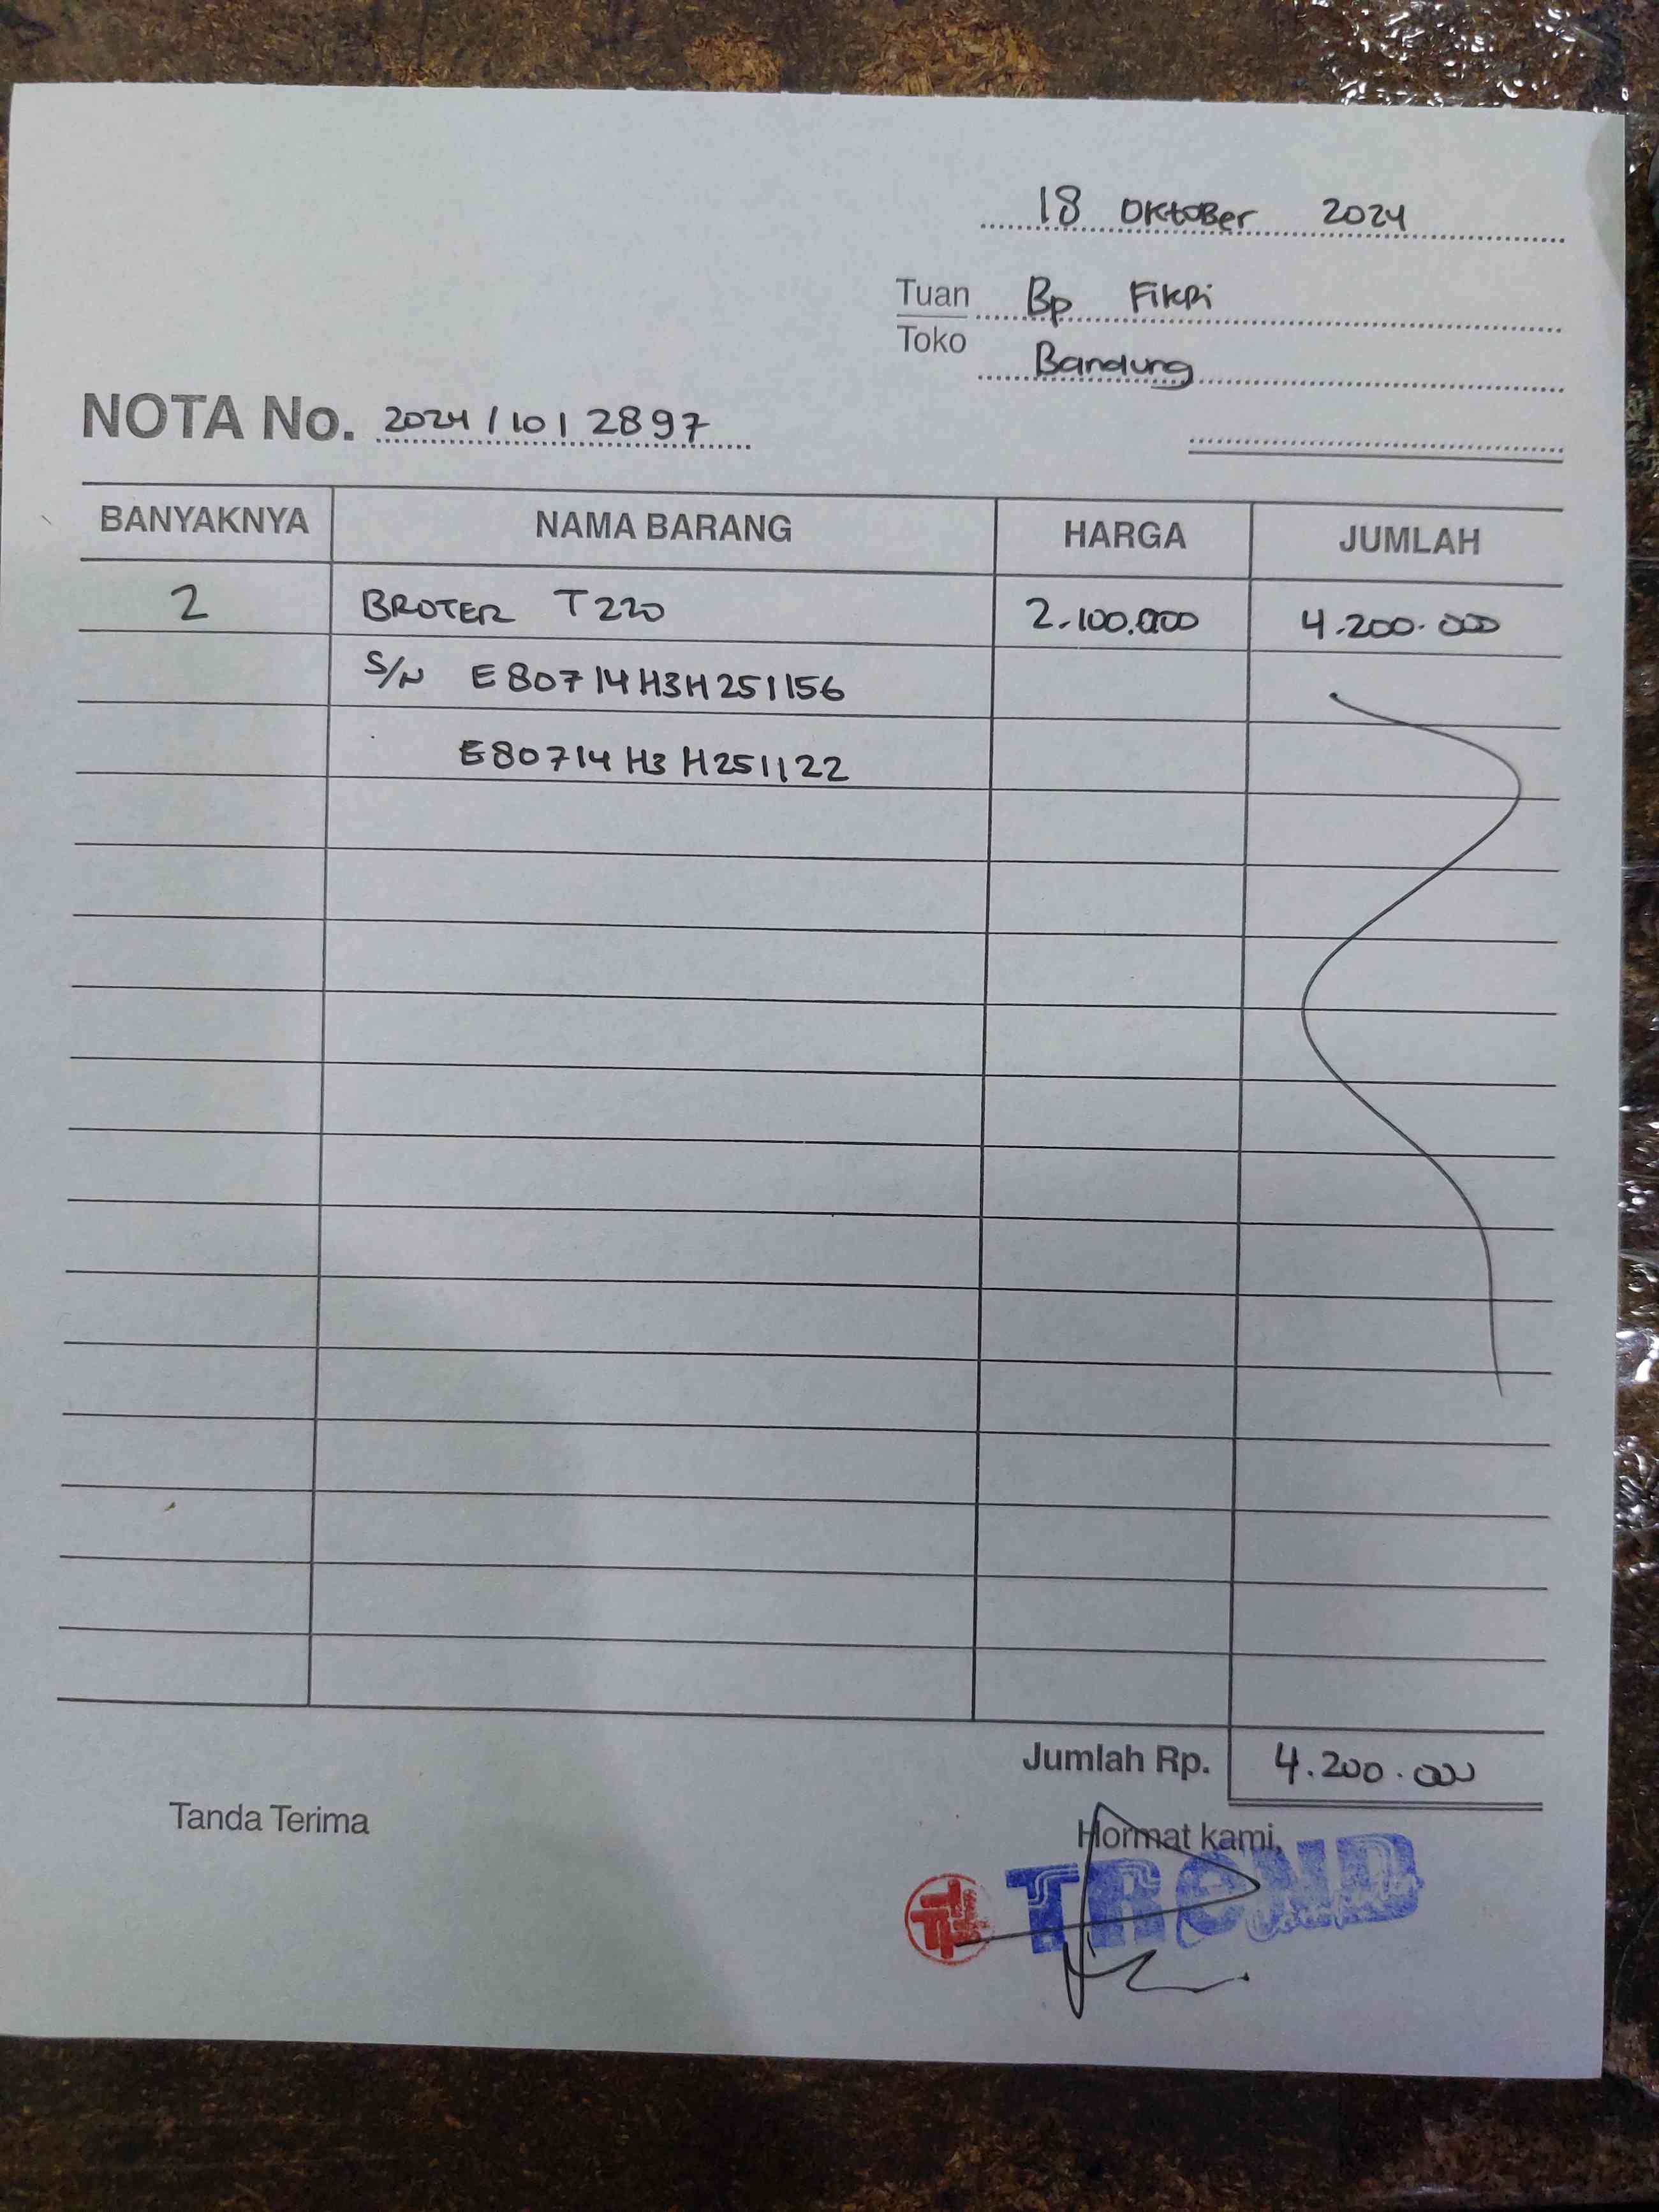 18 Oktober 2024
Tuan Bp Fikri
Toko Bandung
NOTA No. 2024/10/2897
BANYAKNYA NAMA BARANG HARGA JUMLAH
2 BROTER T220 2.100.000 4.200.000
S/N E80714H3H251156
E80714H3H251122
Jumlah Rp. 4.200.000
Tanda Terima
Hormat kami,
TREND